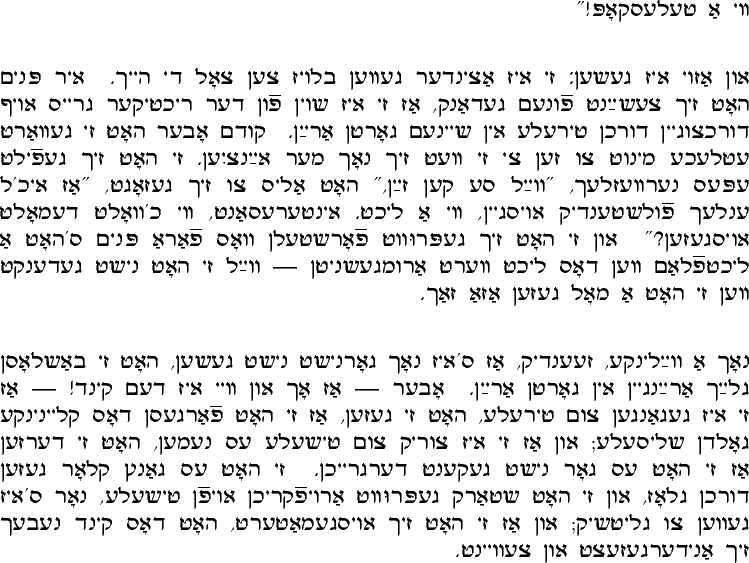 ווי אַ טעלעסקאָפּ!"
און אַזוי איז געשען: זי איז אַצינדער געווען בלויז צען צאָל די הייך. איר פּנים
האָט זיך צעשײַנט פֿונעם געדאַנק, אַז זי איז שוין פֿון דער ריכטיקער גרייס אויף
דורכצוגיין דורכן טירעלע אין שיינעם גאָרטן אַרײַן. קודם אָבער האָט זי געוואַרט
עטלעכע מינוט צו זען צי זי וועט זיך נאָך מער אײַנציִען. זי האָט זיך געפֿילט
עפּעס נערוועזלעך, "ווײַל סע קען זײַן," האָט אַליס צו זיך געזאָגט, "אַז איכ'ל
ענלעך פֿולשטענדיק אויסגיין, ווי אַ ליכט. אינטערעסאַנט, ווי כ'וואָלט דעמאָלט
אויסגעזען?" און זי האָט זיך געפּרוּווט פֿאָרשטעלן וואָס פֿאַראַ פּנים ס'האָט אַ
ליכטפֿלאַם ווען דאָס ליכט ווערט אַרומגעשניטן — ווײַל זי האָט נישט געדענקט
ווען זי האָט אַ מאָל געזען אַזאַ זאַך.
נאָך אַ ווײַלינקע, זעענדיק, אַז ס'איז נאָך גאָרנישט נישט געשען, האָט זי באַשלאָסן
גלײַך אַרײַנגיין אין גאָרטן אַרײַן. אָבער — אַז אָך און וויי איז דעם קינד! — אַז
זי איז געגאַנגען צום טירעלע, האָט זי געזען, אַז זי האָט פֿאַרגעסן דאָס קליינינקע
גאָלדן שליסעלע; און אַז זי איז צוריק צום טישעלע עס נעמען, האָט זי דערזען
אַז זי האָט עס גאָר נישט געקענט דערגרייכן. זי האָט עס גאַנץ קלאָר געזען
דורכן גלאָז, און זי האָט שטאַרק געפּרוּווט אַרויפֿקריכן אויפֿן טישעלע, נאָר ס'איז
געווען צו גליטשיק; און אַז זי האָט זיך אויסגעמאַטערט, האָט דאָס קינד נעבעך
זיך אַנידערגעזעצט און צעוויינט.